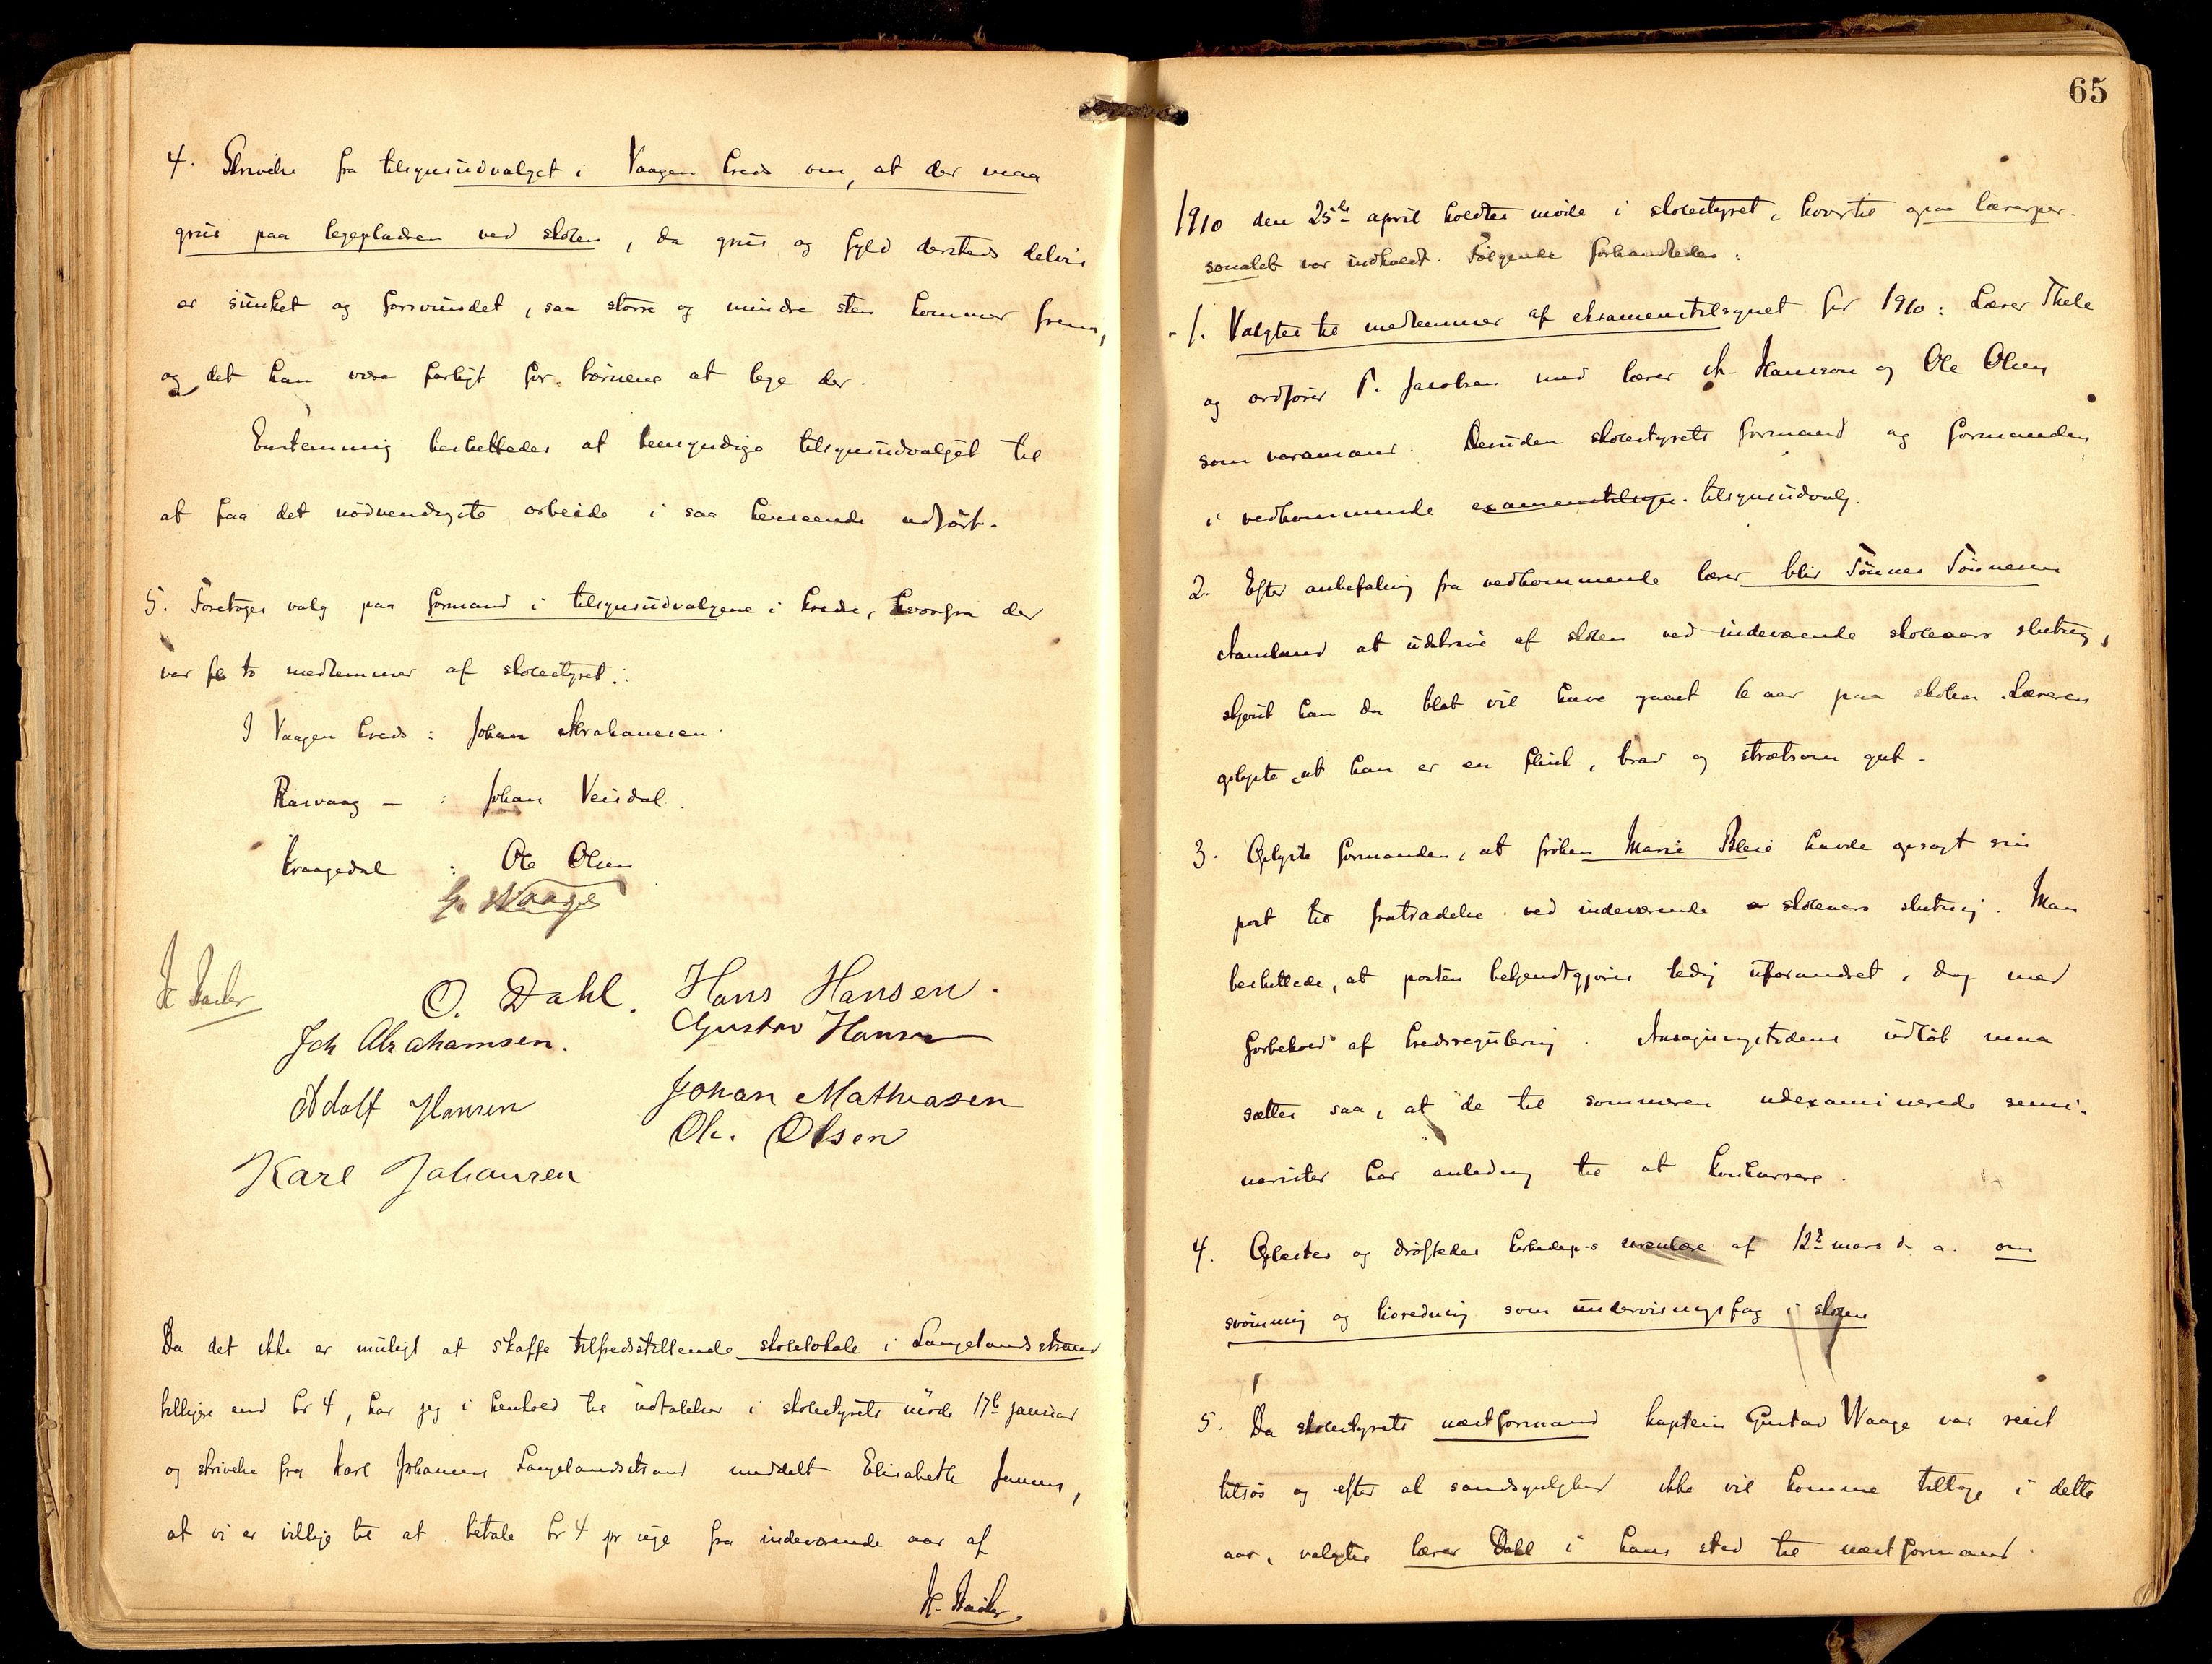 4. Skrivelse fra tilsynsudvalget i Vaagen kreds om, at der maa
grus paa legepladsen ved skolen, da grus og fyld dersteds delvis
er sunket og forsvundet, saa større og mindre sten kommer frem,
og det kan være farligt for børnene at lege der.
Enstemmig besluttedes at bemyndige tilsynsudvalget til
at faa det nødvendigste arbeide i saa henseende udført.
5. Foretoges valg paa formand i tilsynsudvalgene i kredse, hvorfra der
var fl to medlemmer af skolestyret:
I Vaagen kreds : Johan Abrahamsen.
Rasvaag — : Johan Veisdal.
Kraagedal : Ole Olsen
G. Waage
O. Dahl. Hans Hansen.
Joh Abrahamsen. Gustav Hansen
Adolf Hansen Johan Mathiasen
Ole. Olsen
Karl Johansen
Da det ikke er muligt at skaffe tilfredsstillende skolelokale i Langelandsstrand
billigere end kr 4, har jeg i henhold til udtalelser i skolestyrets møde 17de januar
og skrivelse fra Karl Johansen Langelandsstrand meddelt Elisabeth Jensen,
at vi er villige til at betale kr 4 pr uge fra indeværende aar af
65
1910 den 25de april holdtes møde i skolestyret, hvortil ogsaa lærerper-
sonalet var indkaldt. Følgende forhandledes:
1. Valgtes til medlemmer af eksamenstilsynet for 1910: Lærer Thele
og ordfører T. Jacobsen med lærer A. Hansson og Ole Olsen
som varamænd. Desuden skolestyrets formand og formanden
i vedkommende examenstilsyn. tilsynsudvalg.
2. Efter anbefaling fra vedkommende lærer blir Tønnes Tønnesen
Aamland at udskrive af skolen ved indeværende skoleaars slutning,
skjønt han da blot vil have gaaet 6 aar paa skolen. Læreren
oplyste, at han er en flink, brav og strætsom gut.
3. Oplyste formanden, at frøken Marie Bleie havde opsagt sin
post til fratrædelse ved indeværende skoleaars slutning. Man
besluttede, at posten bekjendtgjøres ledig uforandret, dog med
forbehold af kredsregulering. Ansøgningstidens udløb maa
sættes saa, at de til sommeren udexaminerede semi-
narister har anledning til at konkurrere.
4. Oplæstes og drøftedes kirkedep-s cirkulære af 12te mars d. a. om
svømning og livredning som undervisningsfag i skolen
5. Da skolestyrets næstformand kaptein Gustav Waage var reist
tilsjøs og efter al sandsynlighed ikke vil komme tilbage i dette
aar, valgtes lærer Dahl i hans sted til næstformand.